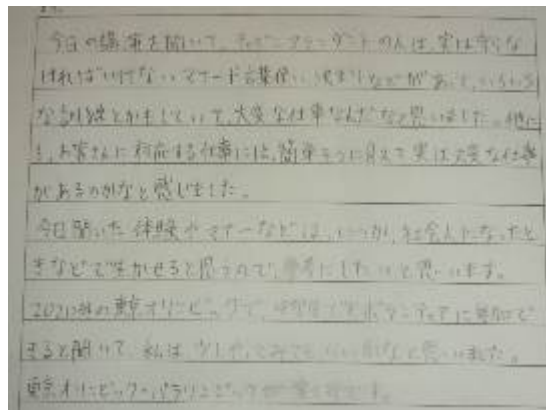 今日の講演を聞いて、キャビンアテンダントの人は、実は守らな
ければいけないマナーや言葉使い、決まりなどがあって、いろいろ
な訓練とかをしていて、大変な仕事なんだなと思いました。他に
も、お客さんに対応する仕事には、簡単そうに見えて実は大変な仕事
があるのかなと感じました。
今日聞いた体験やマナーなどは、いつか、社会人になったと
きなどで生かせると思うので、参考にしたいと思います。
2020年の東京オリンピックで、中学生でもボランティアに参加で
きると聞いて、私は、少しやってみてもいいかなと思いました。
東京オリンピック・パラリンピックが楽しみです。